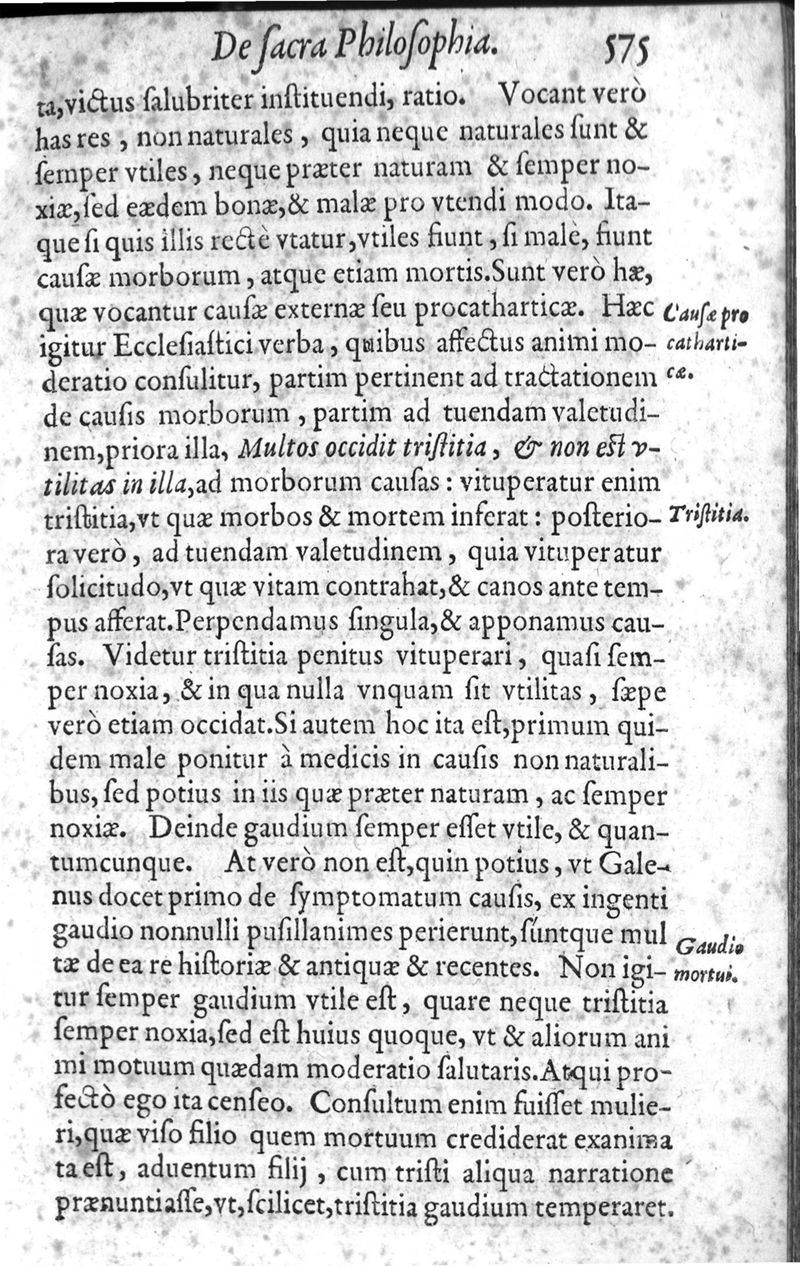 De ſacra Philoſophia. 575
ta,victus ſalubriter inſtituendi, ratio. Vocant verò
has res , non naturales , quia neque naturales ſunt &
ſemper vtiles, neque præter naturam & ſemper no-
xiæ,ſed eædem bonæ,& malæ pro vtendi modo. Ita-
que ſi quis illis rectè vtatur,vtiles fiunt , ſi malè, fiunt
cauſæ morborum , atque etiam mortis.Sunt verò hæ,
quæ vocantur cauſæ externæ ſeu procatharticæ. Hæc
Cauſæ pro
igitur Eccleſiaſtici verba , quibus affectus animi mo-
catharti-
deratio conſulitur, partim pertinent ad tractationem
cæ.
de cauſis morborum , partim ad tuendam valetudi-
nem,priora illa, Multos occidit triſtitia, & non eſt v-
tilitas in illa,ad morborum cauſas : vituperatur enim
triſtitia,vt quæ morbos & mortem inferat : poſterio-
Triſtitia.
ra verò , ad tuendam valetudinem , quia vituperatur
ſolicitudo,vt quæ vitam contrahat,& canos ante tem-
pus afferat.Perpendamus ſingula,& apponamus cau-
ſas. Videtur triſtitia penitus vituperari , quaſi ſem-
per noxia, & in qua nulla vnquam ſit vtilitas , ſæpe
verò etiam occidat.Si autem hoc ita eſt,primum qui-
dem male ponitur à medicis in cauſis non naturali-
bus, ſed potius in iis quæ præter naturam , ac ſemper
noxiæ. Deinde gaudium ſemper eſſet vtile, & quan-
tumcunque. At verò non eſt,quin potius , vt Gale-
nus docet primo de ſymptomatum cauſis, ex ingenti
gaudio nonnulli puſillanimes perierunt,ſúntque mul
Gaudio
tæ de ea re hiſtoriæ & antiquæ & recentes. Non igi-
mortui.
tur ſemper gaudium vtile eſt , quare neque triſtitia
ſemper noxia,ſed eſt huius quoque, vt & aliorum ani
mi motuum quædam moderatio ſalutaris.Atqui pro-
fectò ego ita cenſeo. Conſultum enim fuiſſet mulie-
ri,quæ viſo filio quem mortuum crediderat exanima
ta eſt , aduentum filij , cum triſti aliqua narratione
prænuntiaſſe,vt,ſcilicet,triſtitia gaudium temperaret.